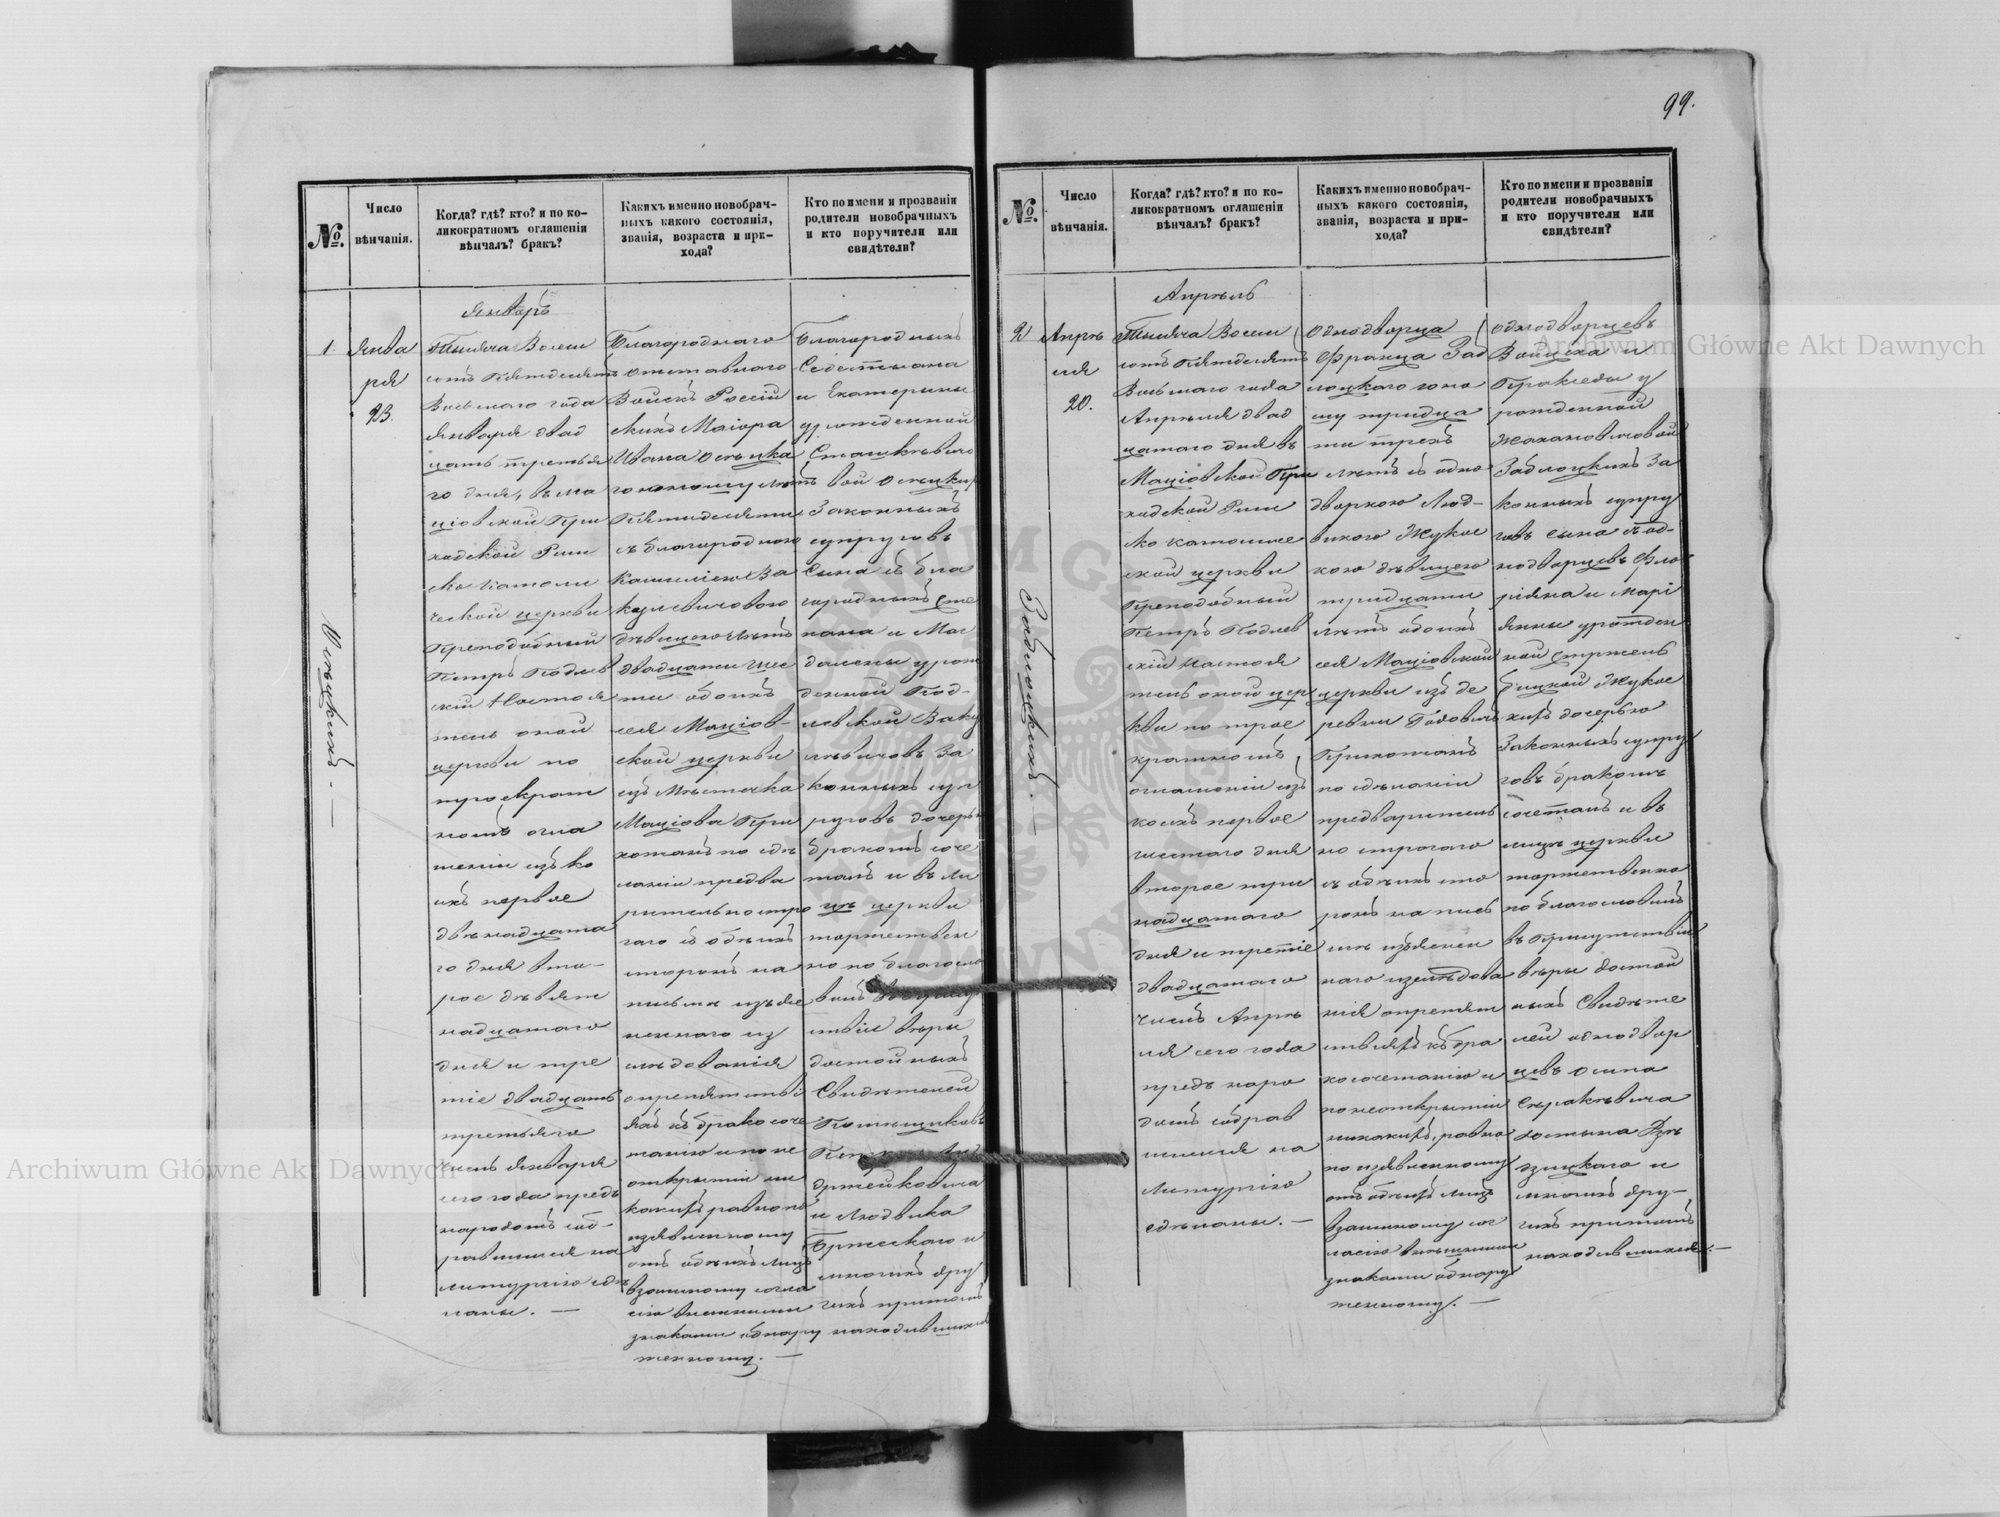 99.
№.
Число
вѣнчанія.
Когда? гдѣ? кто? и по ко-
ликократномъ оглашеніи
вѣнчалъ? бракъ?
Какихъ именно новобрач-
ныхъ какого состоянія,
званія, возраста и при-
хода?
Кто по имени и прозванію
родители новобрачныхъ
и кто поручители или
свидѣтели?
1.
Янва
ря
23.
Январь
Тысяча Восемь
сотъ Пятьдесятъ
Восьмого года
Января двад
цать третья
го дня, въ Ма
ціовской При
ходской Рим
ско Католи
ческой церкви
Преподобный
Петръ Подлев
скій Настоя
тель оной
церкви по
троекрат
номъ огла
шеніи изъ ко
ихъ первое
двѣнадцата
го дня вто-
рое девят
надцатаго
дня и тре
тіе двадцать
третьяго
числъ Января
сего года предъ
народомъ соб-
равшимся на
литургію сдѣ
ланы. —
Благороднаго
отставного
Войскъ Россій
скихъ Маіора
Ивана
го юношу лѣтъ
Пятидесяти
съ благородною
Камиліею Ва
кулевичовою
дѣвицею лѣтъ
двадцати шес
ти обоихъ
сея Маціов-
ской церкви
изъ Мѣстечка
Маціова При
хожанъ по сдѣ
ланіи предва
рительно стро
гаго съ обѣихъ
сторонъ на
письмѣ изъяс
неннаго из
слѣдованія
о препятстві
яхъ къ бракосоче
танію и по не
открытіи ни
какихъ равно по
изявленному
отъ обѣихъ лицъ
взаимному согла
сію внешними
знаками обнару
женному. —
Благородныхъ
Себестьяна
и Екатерины
урожденной
Сташкѣвичо
вой
Законныхъ
супруговъ
Сына съ бла
городныхъ Сте
пана и Маг
далены урож
денной Под-
левской Ваку
лѣвичовъ За
конныхъ суп
руговъ дочерь
бракомъ соче
талъ и въ ли
цѣ церкви
торжествен
но по благосло
вилъ въ присут
ствіи вѣры
достойныхъ
Свидѣтелей
Помѣщиковъ
држейковича
и Людвика
Бржескаго и
многихъ дру
гихъ притомъ
находившихся
№.
Число
вѣнчанія.
Когда? гдѣ? кто? и по ко-
ликократномъ оглашеніи
вѣнчалъ? бракъ?
Какихъ именно новобрач-
ныхъ какого состоянія,
званія, возраста и при-
хода?
Кто по имени и прозванію
родители новобрачныхъ
и кто поручители или
свидѣтели?
2
Апрѣ
ля
20.
Заблоцкихъ. —
Апрѣль
Тысяча Восемь
сотъ Пятьдесятъ
Восьмого года
Апрѣля двад
цатаго дня въ
Маціовской При
ходской Рим
ско католиче
ской церкви
Преподобный
Петръ Подлев
скій Настоя
тель оной цер
кви по трое
кратномъ
оглашеніи изъ
коихъ первое
шестаго дня
второе три
надцатаго
дня и третіе
двадцатаго
числъ Апрѣ
ля сего года
предъ наро
домъ собрав
шимся на
Литургію
сдѣланы. —
Однодворца
Франца Заб
лоцкого юно
шу тридца
ти трехъ
лѣтъ съ одно
дворкою Люд-
викою Жуков
кою дѣвицею
тридцати
лѣтъ обоихъ
сея Маціовской
церкви изъ де
ревни
Прихожанъ
по сдѣланіи
предваритель
но строгаго
съ обѣихъ сто
ронъ на пись
мѣ изъяснен
наго изслѣдова
нія опрепят
ствіяхъ къ бра
косочетанію и
по неоткрытіи
никакихъ, равно
по изявленному
отъ обѣихъ лицъ
взаимному сог
ласію внѣшними
знаками обнару
женному. —
Однодворцевъ
Войцеха и
Пракседы у
рожденной
Заблоцкихъ За
конныхъ супру
говъ сына съ од-
нодворцевъ Фло
ріяна и Марі
янны урожден
ной
дочерью
Законныхъ супру
говъ бракомъ
сочеталъ и въ
лицѣ церкви
торжественно
по благословилъ
въ Присутствіи
вѣры достой
ныхъ Свидѣте
лей однодвор
цевъ Осипа
и
многихъ дру-
гихъ притомъ
находившихся. —
Archiwum Główne Akt Dawnych
Archiwum Główne Akt Dawnych